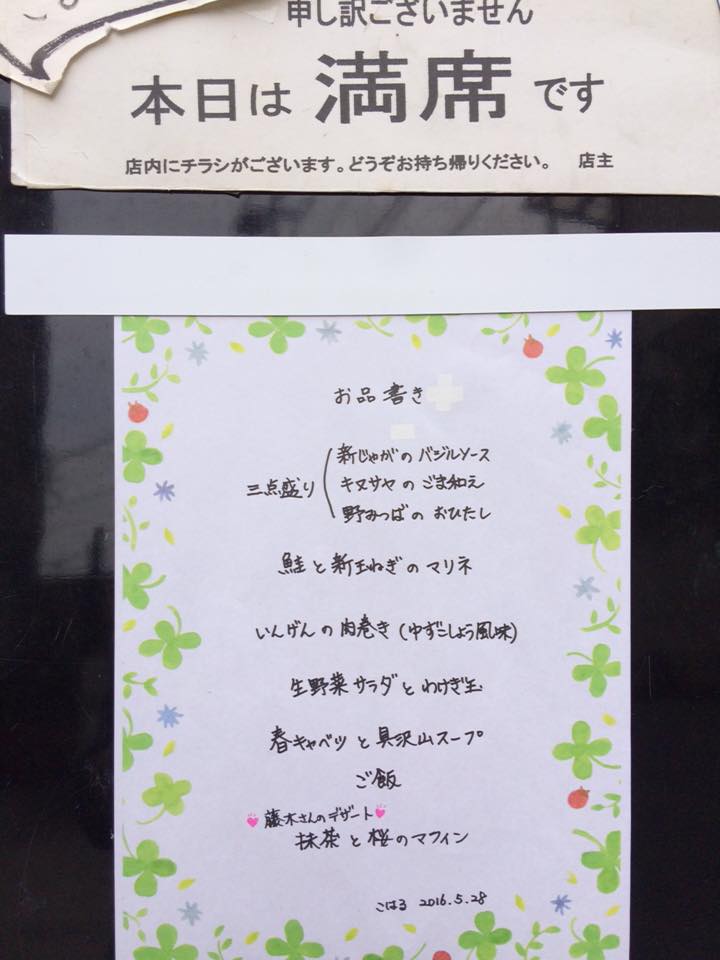 申し訳ございません
本日は 満席 です
店内にチラシがございます。どうぞお持ち帰りください。 店主
お品書き
三点盛り
新じゃがのバジルソース
キヌサヤのごま和え
野みつばのおひたし
鮭と新玉ねぎのマリネ
いんげんの肉巻き(ゆずこしょう風味)
生野菜サラダとわけぎ玉
春キャベツと具沢山スープ
ご飯
藤木さんのデザート
抹茶と桜のマフィン
こはる 2016.5.28